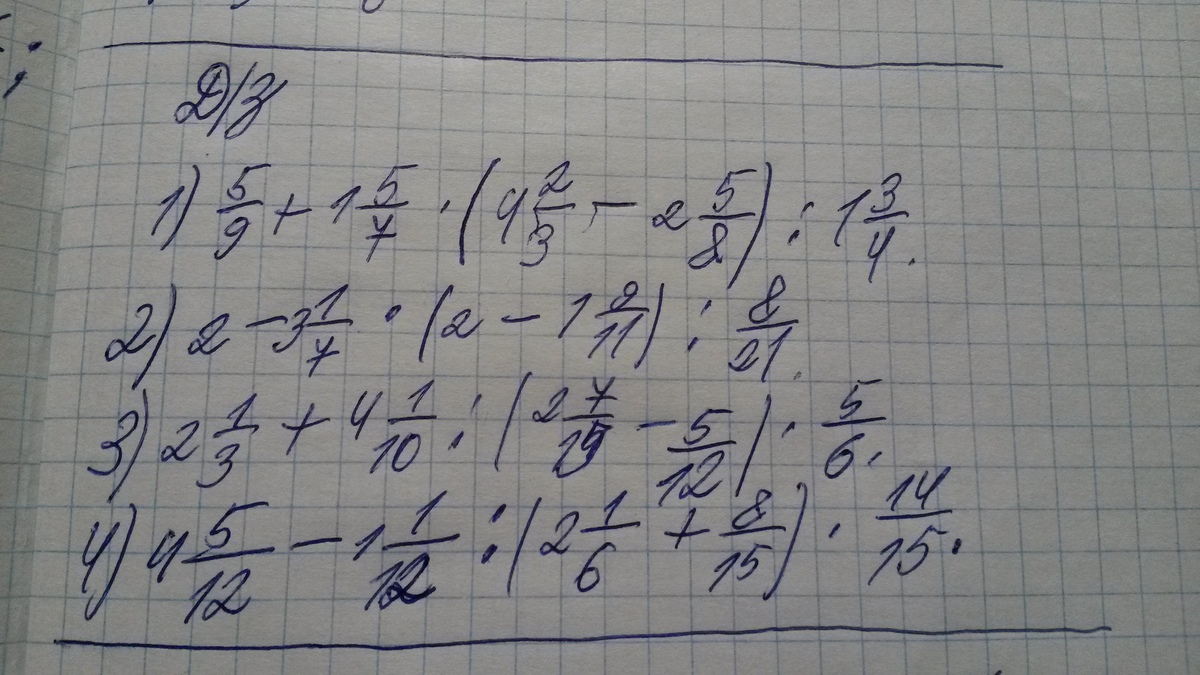 Д/З
1) 5/9 + 1 5/7 · (4 2/3 - 2 5/8) : 1 3/4.
2) 2 - 3 1/7 · (2 - 1 9/11) : 8/21.
3) 2 1/3 + 4 1/10 : (2 7/15 - 5/12) · 5/6.
4) 4 5/12 - 1 1/12 : (2 1/6 + 8/15) · 14/15.